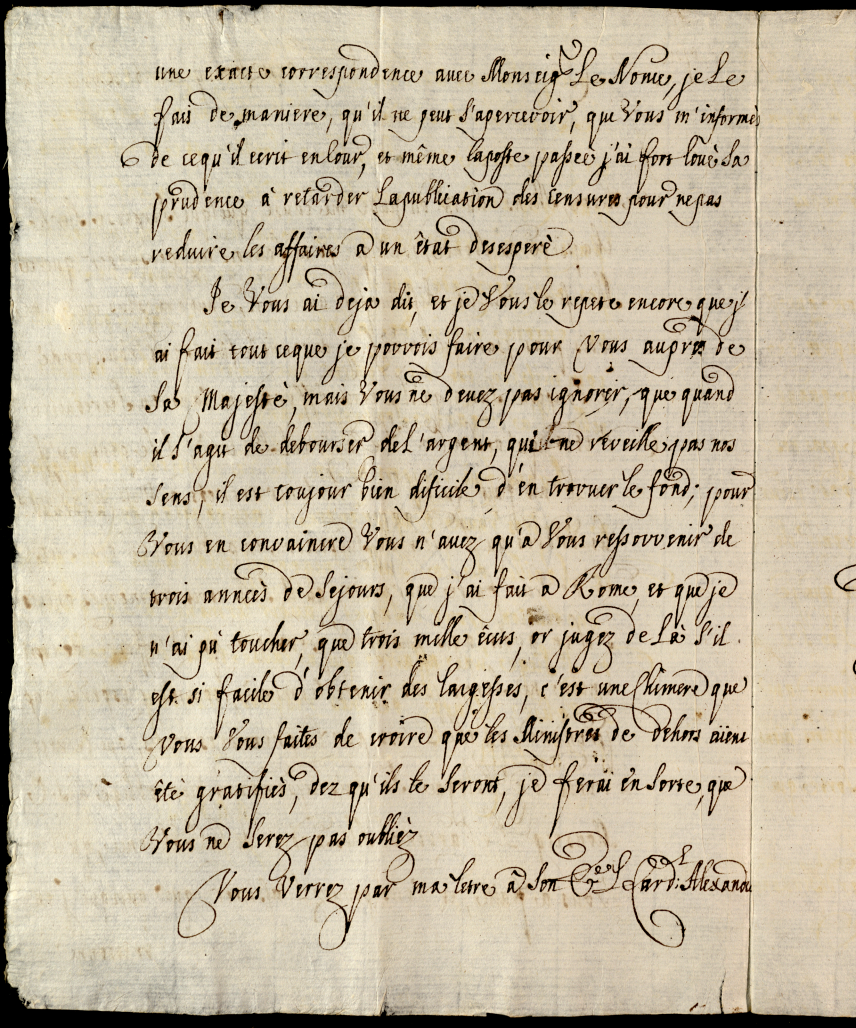 une exacte correspondence avec Monseigr Le Nonce, je Le
fais de maniere, qu'il ne peut s'apercevoir, que Vous m'informés
de cequ'il ecrit en Cour, et même laposte passeé j'ai fort loüé Sa
prudence à retarder Lapublication des censures pour nepas
reduire les affaires a un êtat desesperè
Je Vous ai deja dit, et je Vous le repete encore que j'
ai fait tout ceque je povvois faire pour Vous aupres de
Sa Majestè, mais Vous ne devez pas ignorer, que quand
il s'agit de debourser de L'argent, qui ne réveille pas nos
sens, il est toujour bien dificile d'en trovver le fond; pour
Vous en convaincre Vous n'avez qu'a Vous ressovvenir de
trois anneés de Sejours, que j'ai fait a Rome, et que je
n'ai pù toucher, que trois mille êcus, or jugez de Là s'il
est si facile d'obtenir des largesses, c'est une Chimere que
Vous Vous faites de croire que les Ministres de dehors aient
êtè gratifiès, dez qu'ils le Seront, je ferai en Sorte, que
Vous ne Serez pas oubliéz
Vous Verrez par ma letre â Son Card: Alexandre